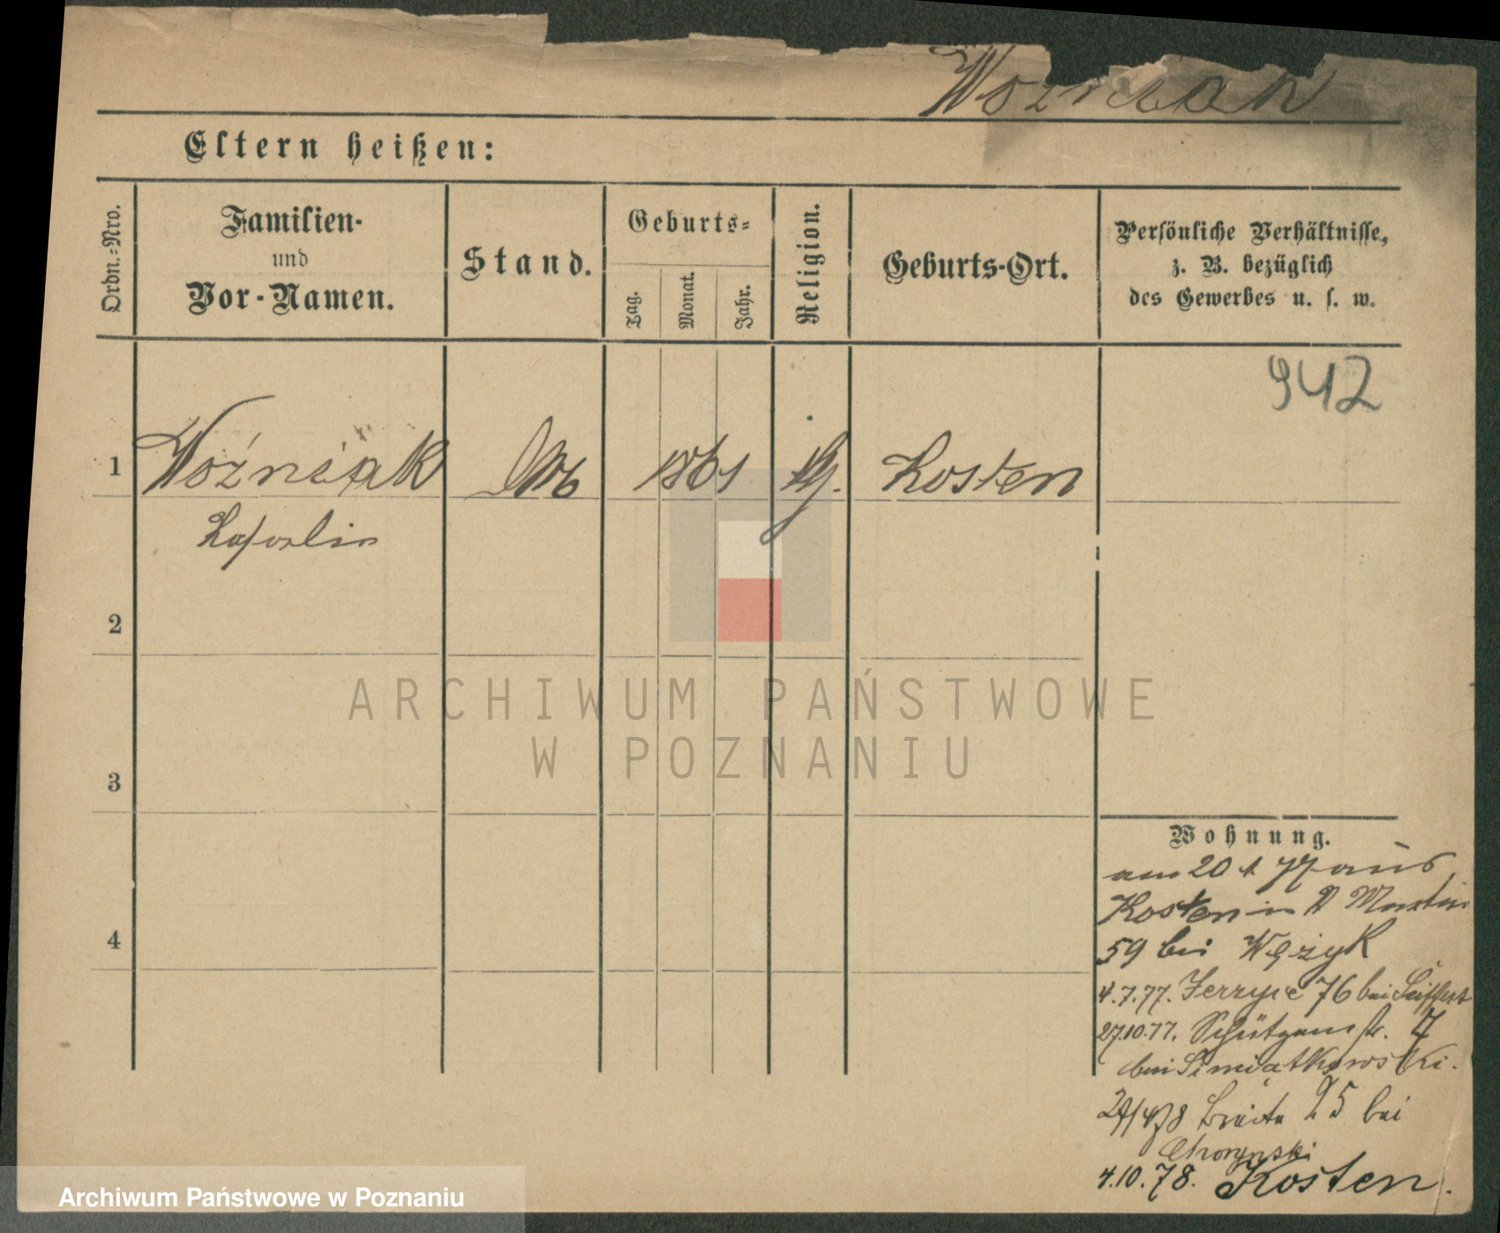 Woźniak
Eltern heißen:
Ordn.-Nro.
Familien-
und
Vor-Namen.
Stand.
Geburts-
Tag.
Monat.
Jahr.
Religion.
Geburts-Ort.
Persönliche Verhältnisse,
z. B. bezüglich
des Gewerbes u. s. w.
942
1 Woźniak 1861 Kosten
2
3
4
ARCHIWUM PAŃSTWOWE
W POZNANIU
Wohnung.
am 20 77 aus
Kosten in Martin
59 bei Wężyk
4.7.77. Jerzyce 76 bei Seiffert
27.10.77. Schützenstr. 7
bei Simiatkowski.
78 Breite 25 bei
Chorynski
4.10.78. Kosten.
Archiwum Państwowe w Poznaniu